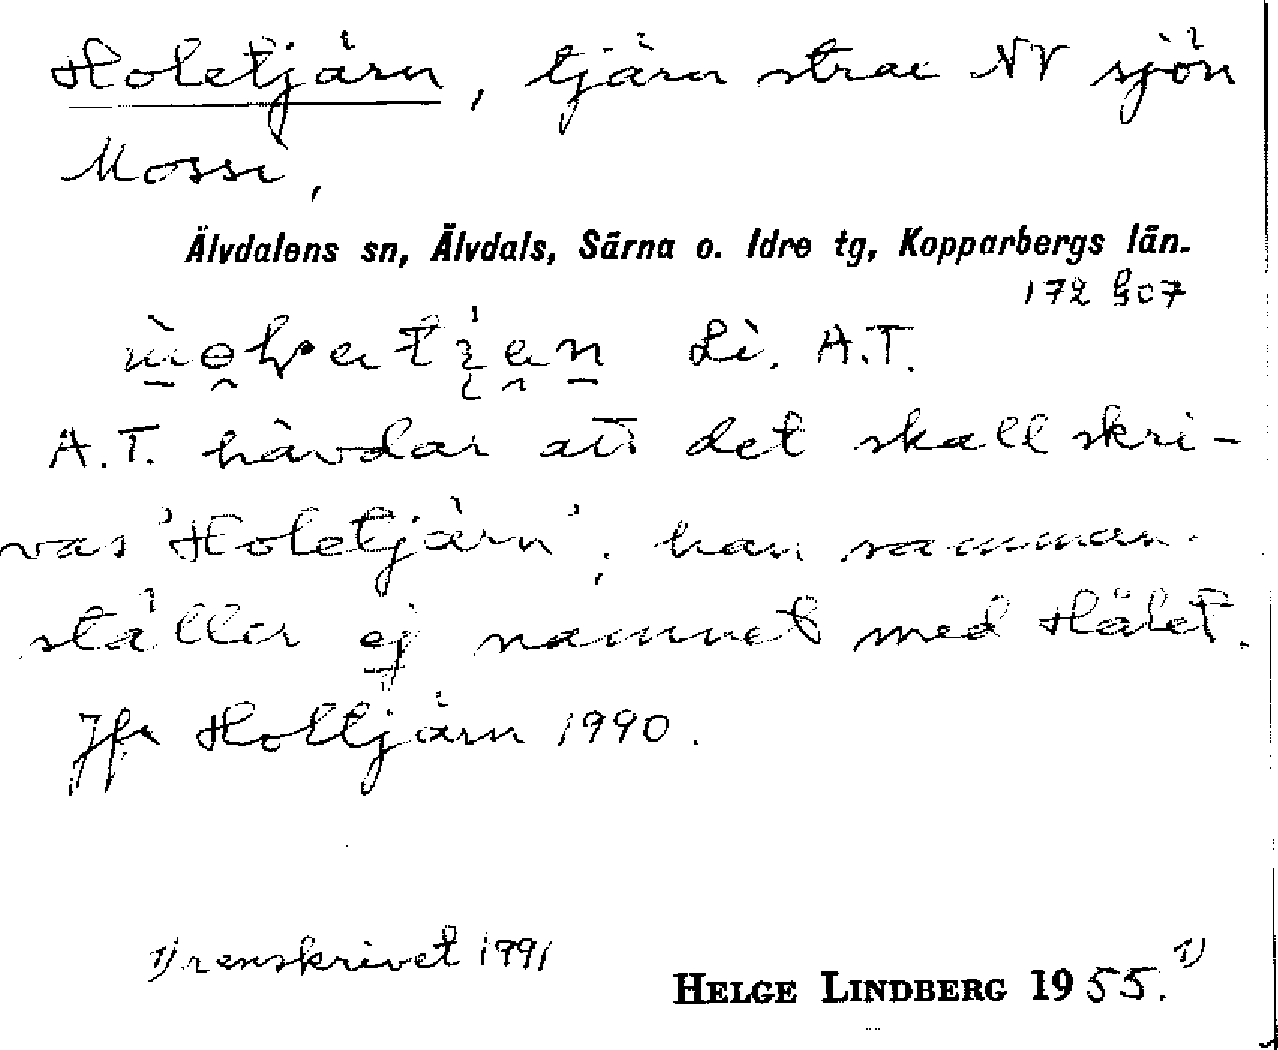 Holetjärn, tjärn strax NV sjön
Mossi,
Älvdalens sn, Älvdals, Särna o. Idre tg, Kopparbergs län.
172 907
Li. A.T.
A.T. hävdar att det skall skri-
vas 'Holetjärn', han samman-
ställer ej namnet med Hålet.
Jfr Holtjärn 1990.
1) renskrivet 1991
HELGE LINDBERG 1955. 1)